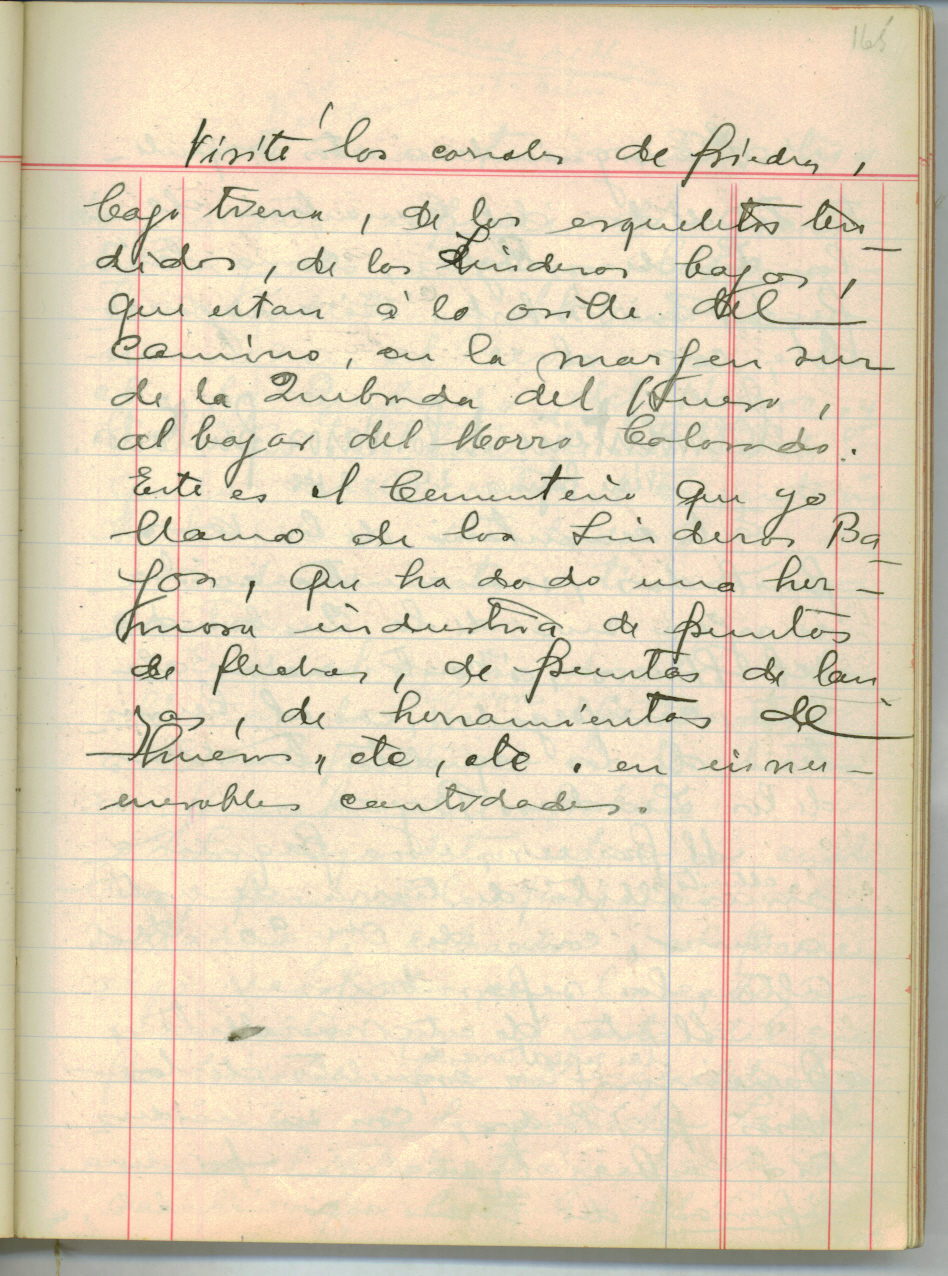 165
Visité los corrales de piedra,
bajo tierra, de los esqueletos ten
didos, de los Linderos bajos,
que estan á la orilla del
camino, en la margen sur
de la Quebrada del Hueso,
al bajar del Morro Colorado.
Este es el Cementerio que yo
llamo de los Linderos Ba-
jos, que ha dado una her-
mosa industria de puntas
de flechas, de puntas de lan-
zas, de herramientas de
hueso, etc, etc. en innu-
merables cantidades.